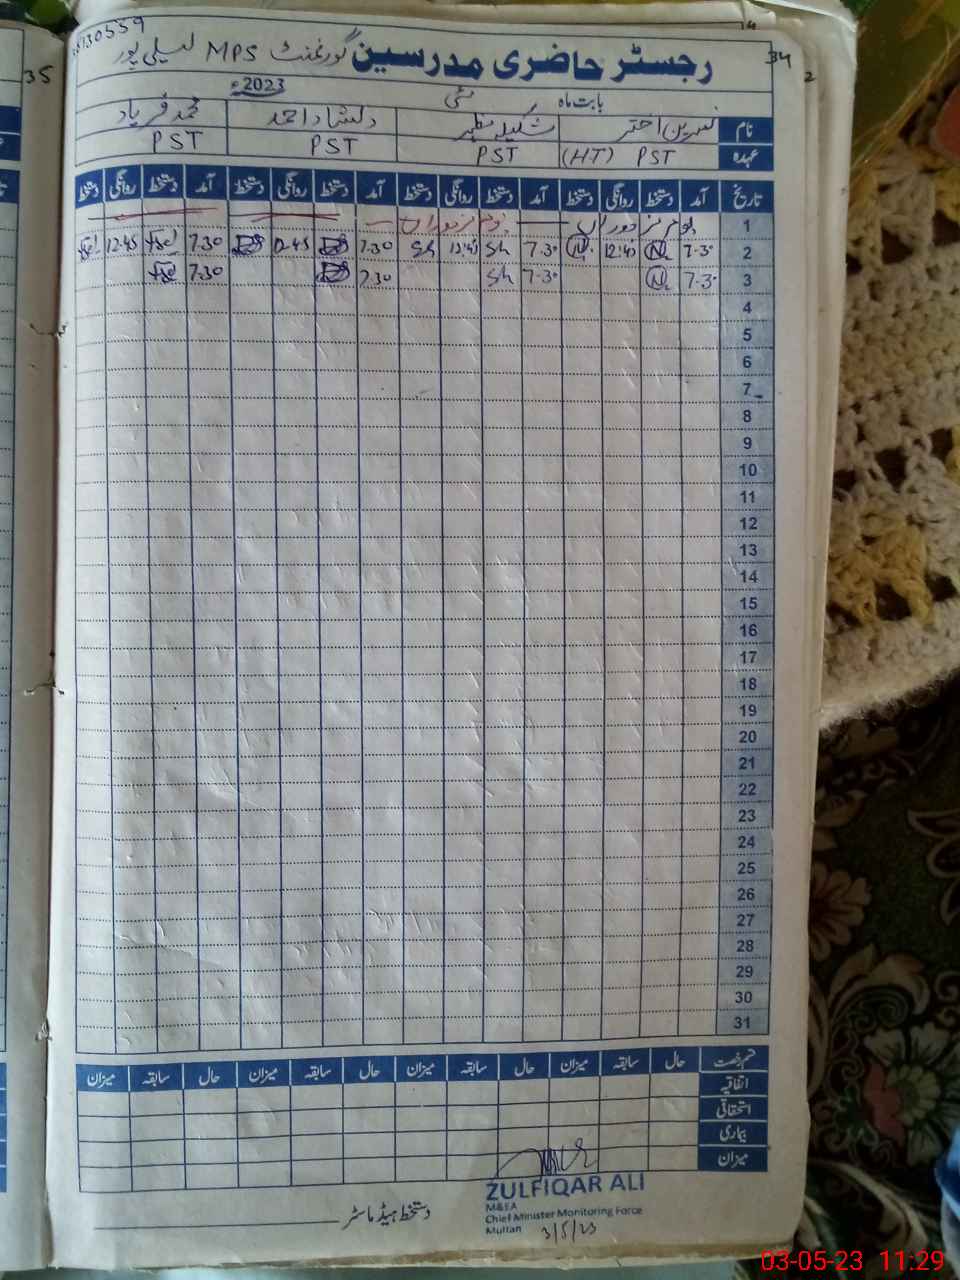 35130559
رجسٹر حاضری مدرسین گورنمنٹ MPS لیلی پور
34
35
2
بابت ماہ مئی 2023ء
نام نسرین اختر شکیلہ مظہر دلشاد احمد محمد فریاد
عہدہ PST (HT) PST PST PST
تاریخ آمد دستخط روانگی دستخط آمد دستخط روانگی دستخط آمد دستخط روانگی دستخط آمد دستخط روانگی دستخط
1 یوم مزدوراں یوم مزدوراں
2 7.30 N 12:45 N 7.30 Sh 12:45 Sh 7.30 12.45 7.30 12.45
3 7.30 N 7.30 Sh 7.30 7.30
4
5
6
7
8
9
10
11
12
13
14
15
16
17
18
19
20
21
22
23
24
25
26
27
28
29
30
31
قسم رخصت حال سابقہ میزان حال سابقہ میزان حال سابقہ میزان حال سابقہ میزان
اتفاقیہ
استحقاقی
بیماری
میزان
ZULFIQAR ALI
M&EA
Chief Minister Monitoring Force
Multan 3/5/23
دستخط ہیڈ ماسٹر
03-05-23 11:29